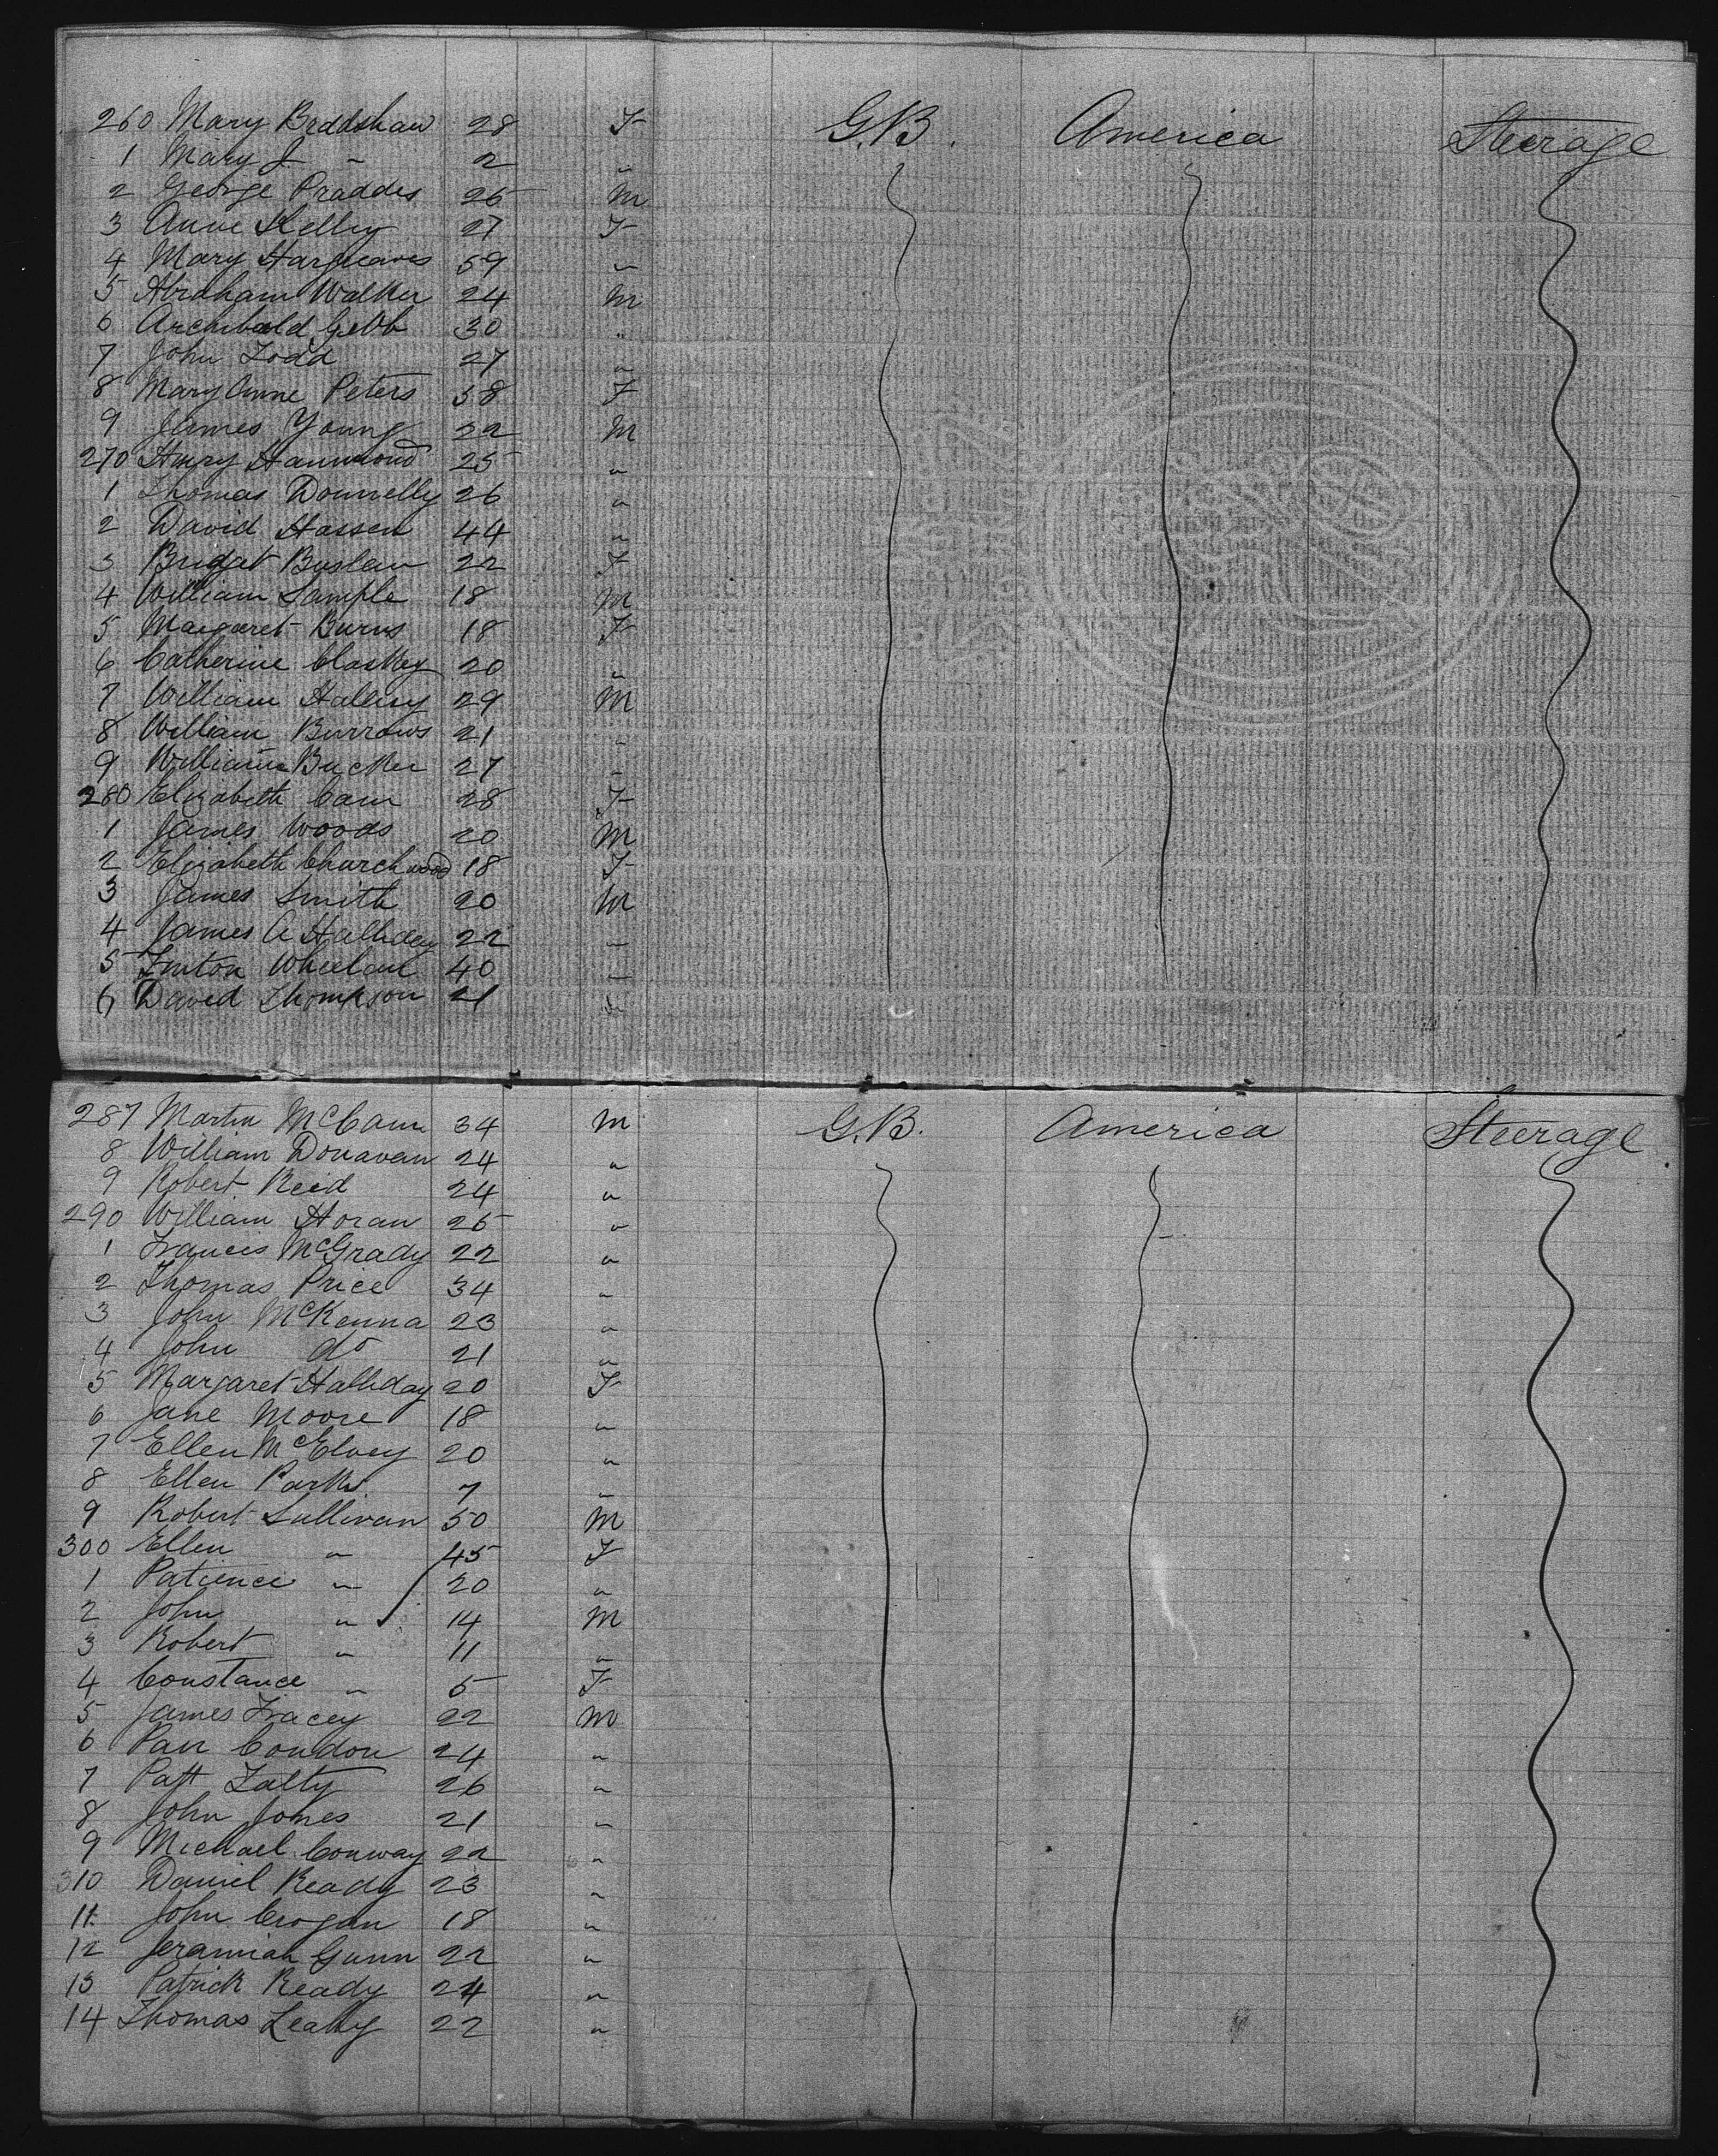 260 Mary Braddshaw 28 F G.B. America Steerage
1 Mary J " 2 "
2 George Praddes 26 M
3 Anne Kelley 27 F
4 Mary Hargreaves 59 "
5 Abraham Walker 24 M
6 Archibald Gebb 30 "
7 John Todd 27 "
8 Mary Anne Peters 38 F
9 James Young 22 M
270 Henry Hammond 25 "
1 Thomas Donnelly 26 "
2 David Hassen 44 "
3 Bridgat 22 F
4 William Sample 18 M
5 Margaret Burns 18 F
6 Catherine Claskey 20 "
7 William 29 M
8 William Burrows 21 "
9 William Bucker 27 "
280 Elizabeth Cain 28 F
1 James Woods 20 M
2 Elizabeth Churchwood 18 F
3 James Smith 20 M
4 James A Halliday 22 "
5 Finton Wheelan 40 "
6 David Thompson 21 "
287 Martin McCann 34 M G.B. America Steerage
8 William Donavan 24 "
9 Robert Reid 24 "
290 William Horan 25 "
1 Francis McGrady 22 "
2 Thomas Price 34 "
3 John McKenna 23 "
4 John do 21 "
5 Margaret Halliday 20 F
6 Jane Moore 18 "
7 Ellen McElvey 20 "
8 Ellen Parks 7 "
9 Robert Sullivan 50 M
300 Ellen " 45 F
1 Patience " 20 "
2 John " 14 M
3 Robert " 11 "
4 Constance " 5 F
5 James Tracey 22 M
6 Condon 24 "
7 Patt Talty 26 "
8 John Jones 21 "
9 Michael Conway 22 "
310 Daniel Ready 23 "
11 John Crogan 18 "
12 Jeramiah Gunn 22 "
13 Patrick Ready 24 "
14 Thomas Leahy 22 "